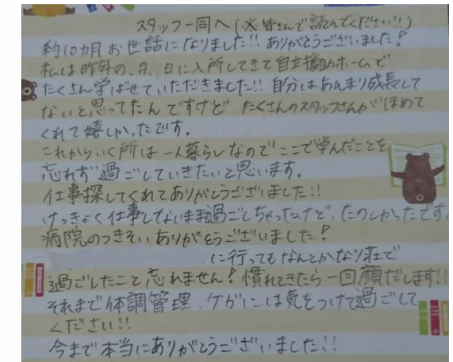 スタッフ一同へ(※皆さんで読んでください!!)
約10カ月お世話になりました!!ありがとうございました!
私は昨年の.月.日に入所してきて自立援助ホームで
たくさん学ばせていただきました!!自分はあんまり成長して
ないと思ってたんですけど、たくさんのスタッフさんがほめて
くれて嬉しかったです。
これからいく所は一人暮らしなのでここで学んだことを
忘れず過ごしていきたいと思います。
仕事探してくれてありがとうございました!!
けっきょく仕事してないまま過ごしちゃったけど、たのしかったです。
病院のつきそいありがとうございました!
に行ってもなんとかなり荘で
過ごしたこと忘れません!慣れてきたら一回顔だします!!
それまで体調管理、ケガには気をつけて過ごして
ください!!
今まで本当にありがとうございました!!